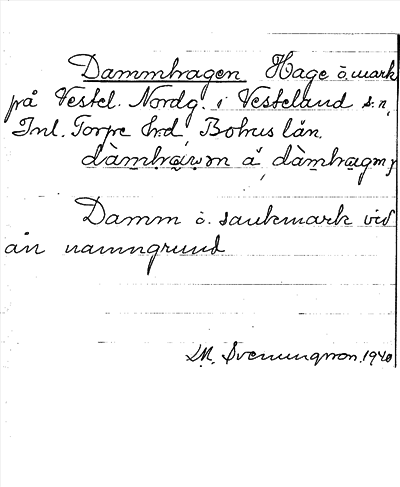 Dammhagen Hage ö. mark
på Vestel. Nordg. i Vesteland s:n,
Inl. Torpe hrd, Bohus län.
Damm o. sankmark vid
ån namngrund
M. Svenungson. 1940